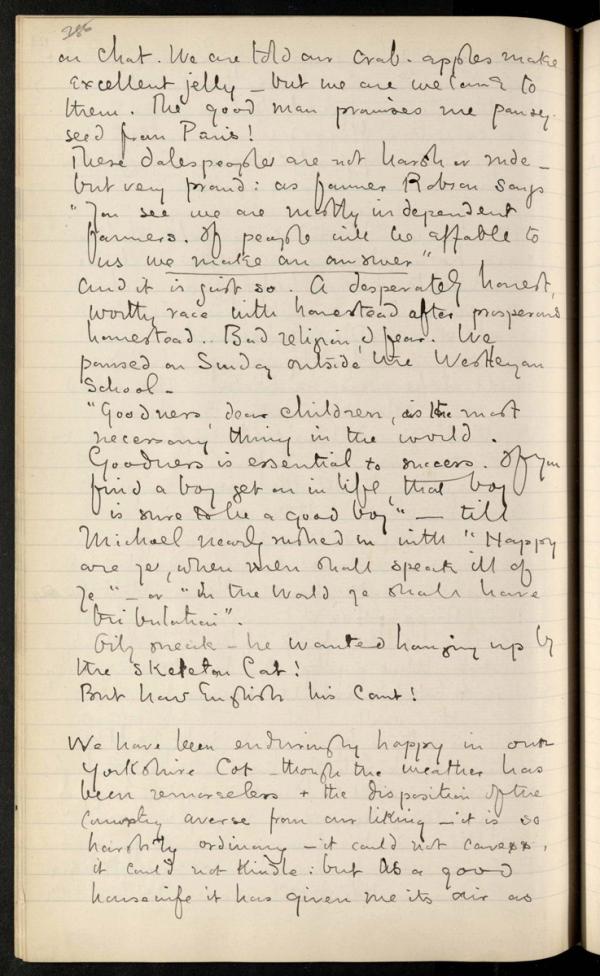 286
on chat. We are told our crab-apples make
excellent jelly – but we are welcome to
them. The good man promises me pansy
seed from Paris!
These dalespeople are not harsh or rude –
but very proud: as farmer Robson says
"You see we are mostly independent
farmers. If people will be affable to
us we make an answer"
and it is just so. A desperately honest,
worthy race with homestead after prosperous
homestead.. Bad religion I fear. We
paused on Sunday outside the Wesleyan
School –
"Goodness, dear children, is the most
necessary thing in the world.
Goodness is essential to success. If you
find a boy get on in life, that boy
is sure to be a good boy" – till
Michael nearly rushed in with "Happy
are ye, when men shall speak ill of
ye" – or "In the world ye shall have
tribulation".
Oily sneak – he wanted hanging up by
the skeleton Cat!
But how English his Cant!
We have been enduringly happy in our
Yorkshire Cot – though the weather has
been remorseless + the disposition of the
country averse from our liking – it is so
harshly ordinary – it could not caress,
it could not kindle: but as a good
housewife it has given me its air as